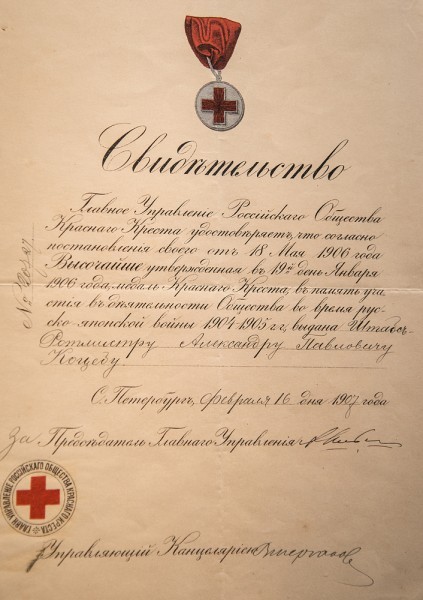 Свидѣтельство
Главное Управленіе Россійскаго Общества
Краснаго Креста удостовѣряетъ, что согласно
постановленія своего отъ 18 Мая 1906 года
Высочайше утвержденная въ 19й день Января
1906 года, медаль Краснаго Креста, въ память уча-
стія въ дѣятельности Общества во время рус-
ско-японской войны 1904-1905 гг, выдана Штабсъ-
Ротмистру Александру Павловичу
Коцебу
С. Петербургъ, Февраля 16 дня 1907 года
За Предсѣдатель Главнаго Управленія
ГЛАВН. УПРАВЛЕНІЕ РОССІЙСКАГО ОБЩЕСТВА КРАСНАГО КРЕСТА
Управляющій Канцеляріею
№